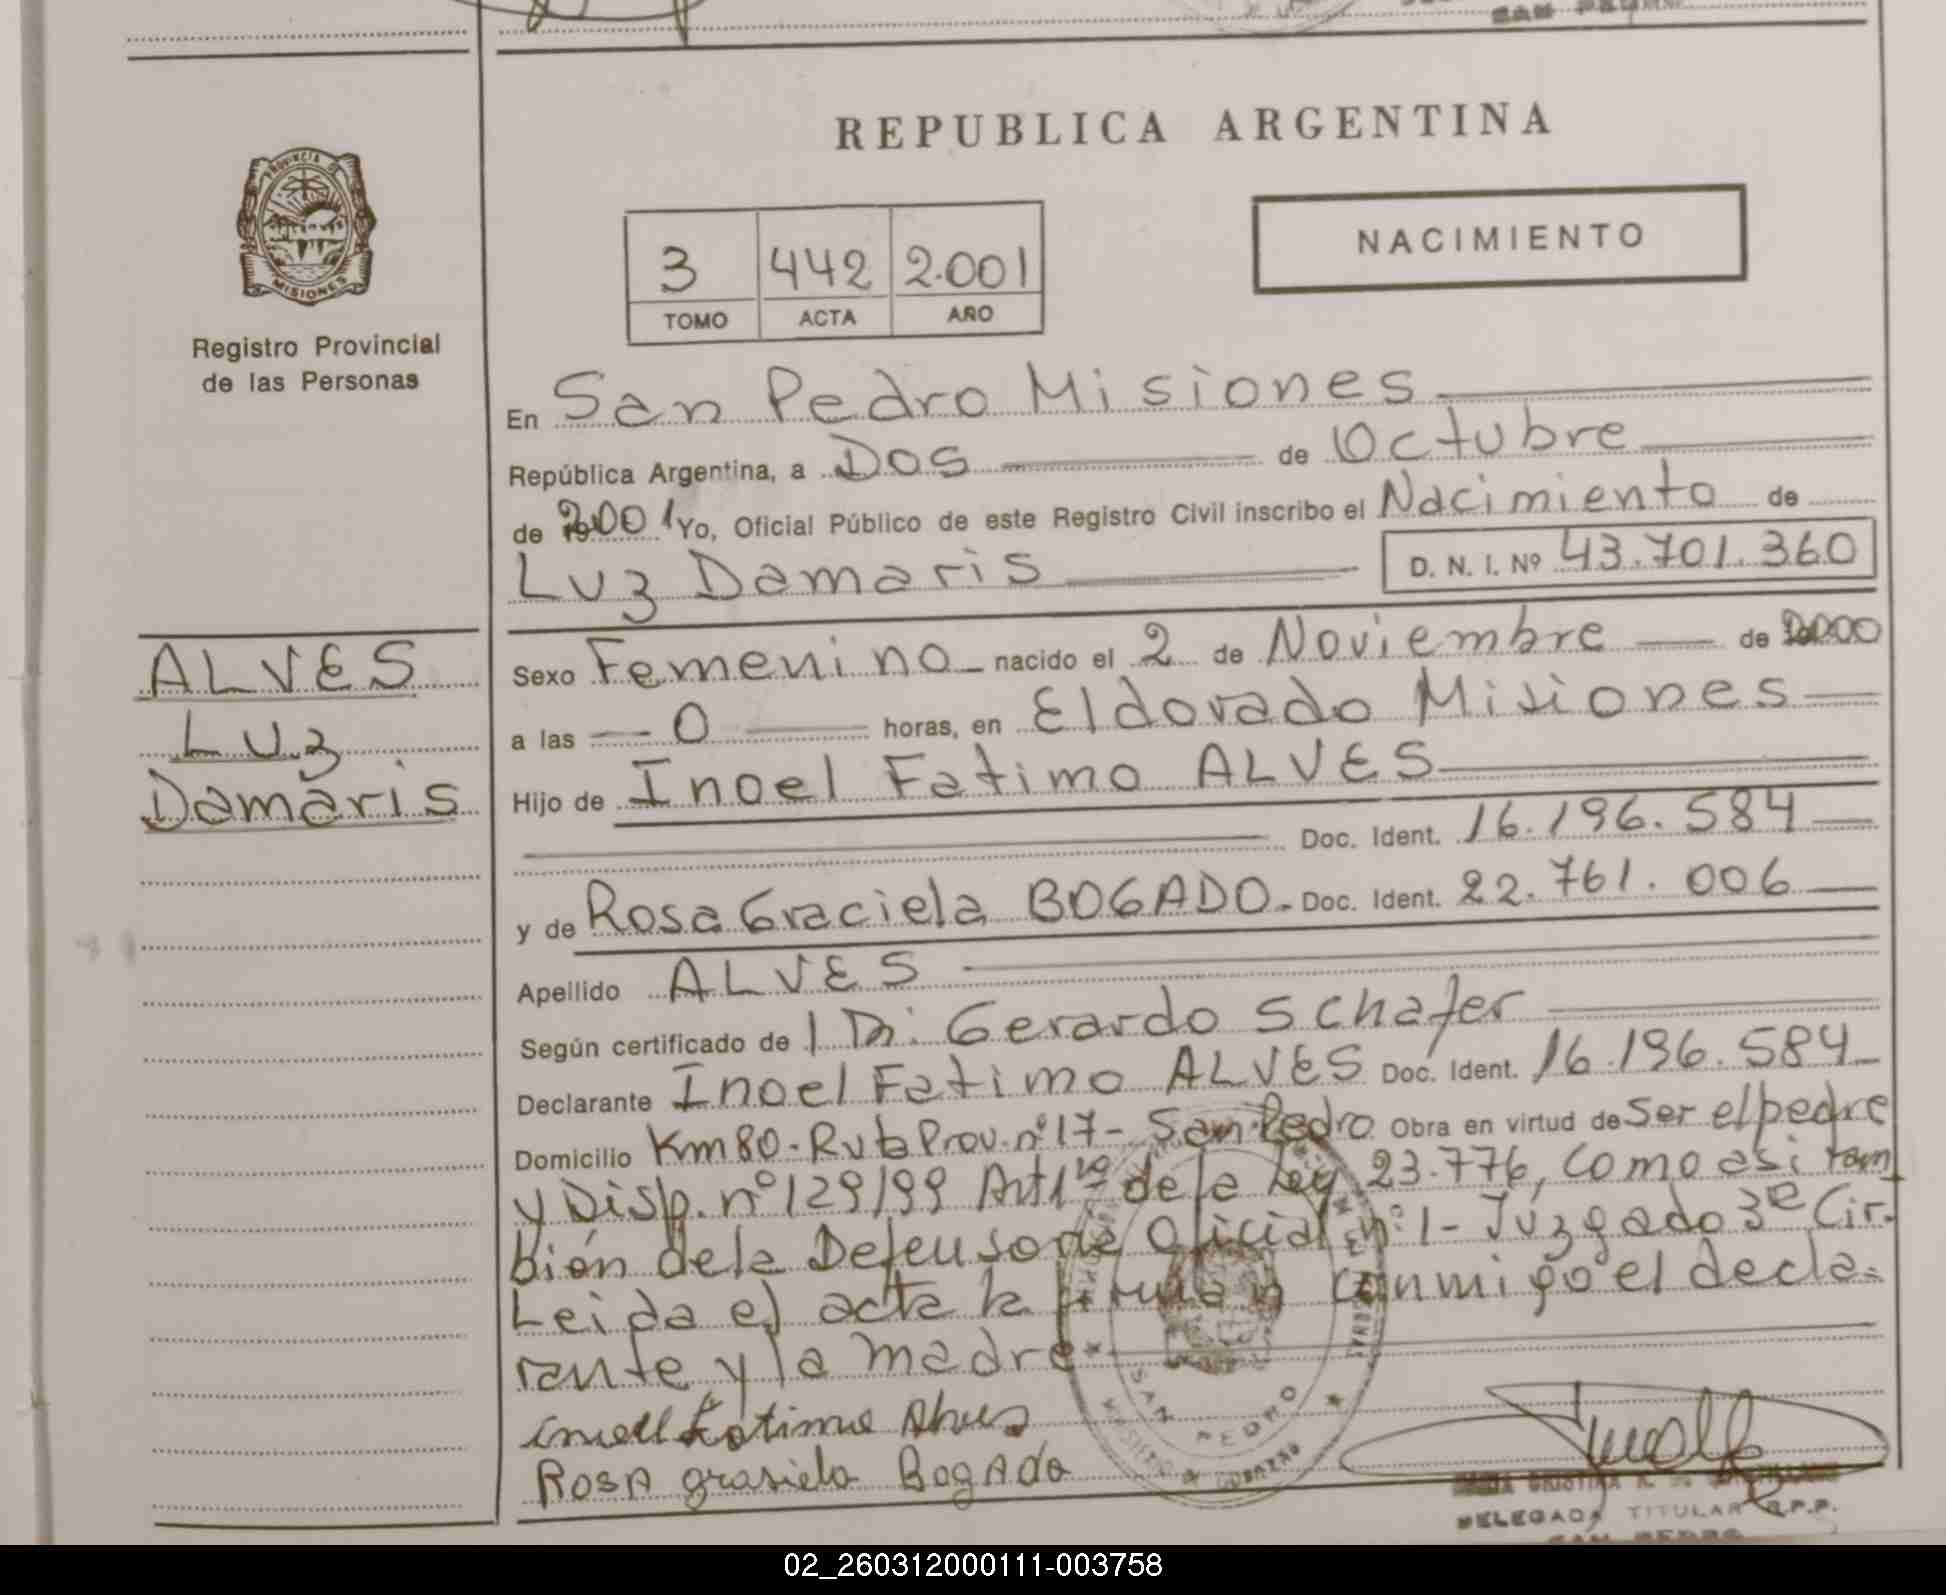 SAN PEDRO
REPUBLICA ARGENTINA
PROVINCIA DE
MISIONES
Registro Provincial
de las Personas
3 442 2.001
TOMO ACTA AÑO
NACIMIENTO
En San Pedro Misiones
República Argentina, a Dos de Octubre
de 2001 Yo, Oficial Público de este Registro Civil inscribo el Nacimiento de
Luz Damaris D. N. I. Nº 43.701.360
ALVES
Luz
Damaris
Sexo Femenino nacido el 2 de Noviembre de 2000
a las 0 horas, en Eldorado Misiones
Hijo de Inoel Fatimo ALVES
Doc. Ident. 16.196.584
y de Rosa Graciela BOGADO. Doc. Ident. 22.761.006
Apellido ALVES
Según certificado de l Dr. Gerardo Schafer
Declarante Inoel Fatimo ALVES Doc. Ident. 16.196.584
Domicilio Km 80 - Ruta Prov. nº 17 - San Pedro Obra en virtud de Ser el padre
y Disp. nº 129/99 Art 1º de la Ley 23.776, como asi tam
bión de la Defensoria Oficial nº 1 - Juzgado 3ª Cir.
Leida el acta la firman conmigo el decla-
rante y la madre
Fatimo Alves
Rosa grasiela Bogado
SAN PEDRO
DELEGADA TITULAR R.P.P.
SAN PEDRO
02_260312000111-003758